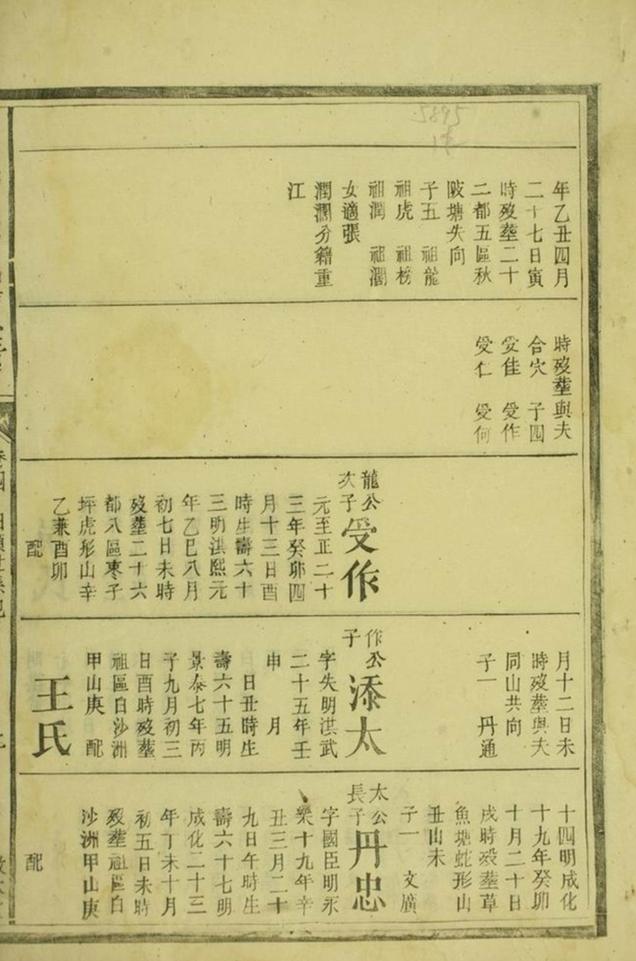 5895
年乙丑四月
二十七日寅
時歿塟二十
二都五區秋
陂塘失向
子五 祖龍
祖虎 祖榜
祖潤 祖瀾
女適張
潤瀾分籍重
江
時歿塟與夫
合穴 子四
受佳 受作
受仁 受何
龍公
次子
受作
元至正二十
三年癸卯四
月十三日酉
時生壽六十
三明洪熙元
年乙巳八月
初七日未時
歿塟二十六
都八區枣子
坪虎形山辛
乙兼酉卯
配
月十二日未
時歿塟與夫
同山共向
子一 丹通
作公
子
添太
字失明洪武
二十五年壬
申 月
日丑時生
壽六十五明
景泰七年丙
子九月初三
日酉時歿塟
祖區白沙洲
甲山庚 配
王氏
十四明成化
十九年癸卯
十月二十日
戌時歿塟草
魚塘蛇形山
丑山未
子一 文廣
太公
長子
丹忠
字國臣明永
樂十九年辛
丑三月二十
九日午時生
壽六十七明
成化二十三
年丁未十月
初五日未時
歿塟祖區白
沙洲甲山庚
配